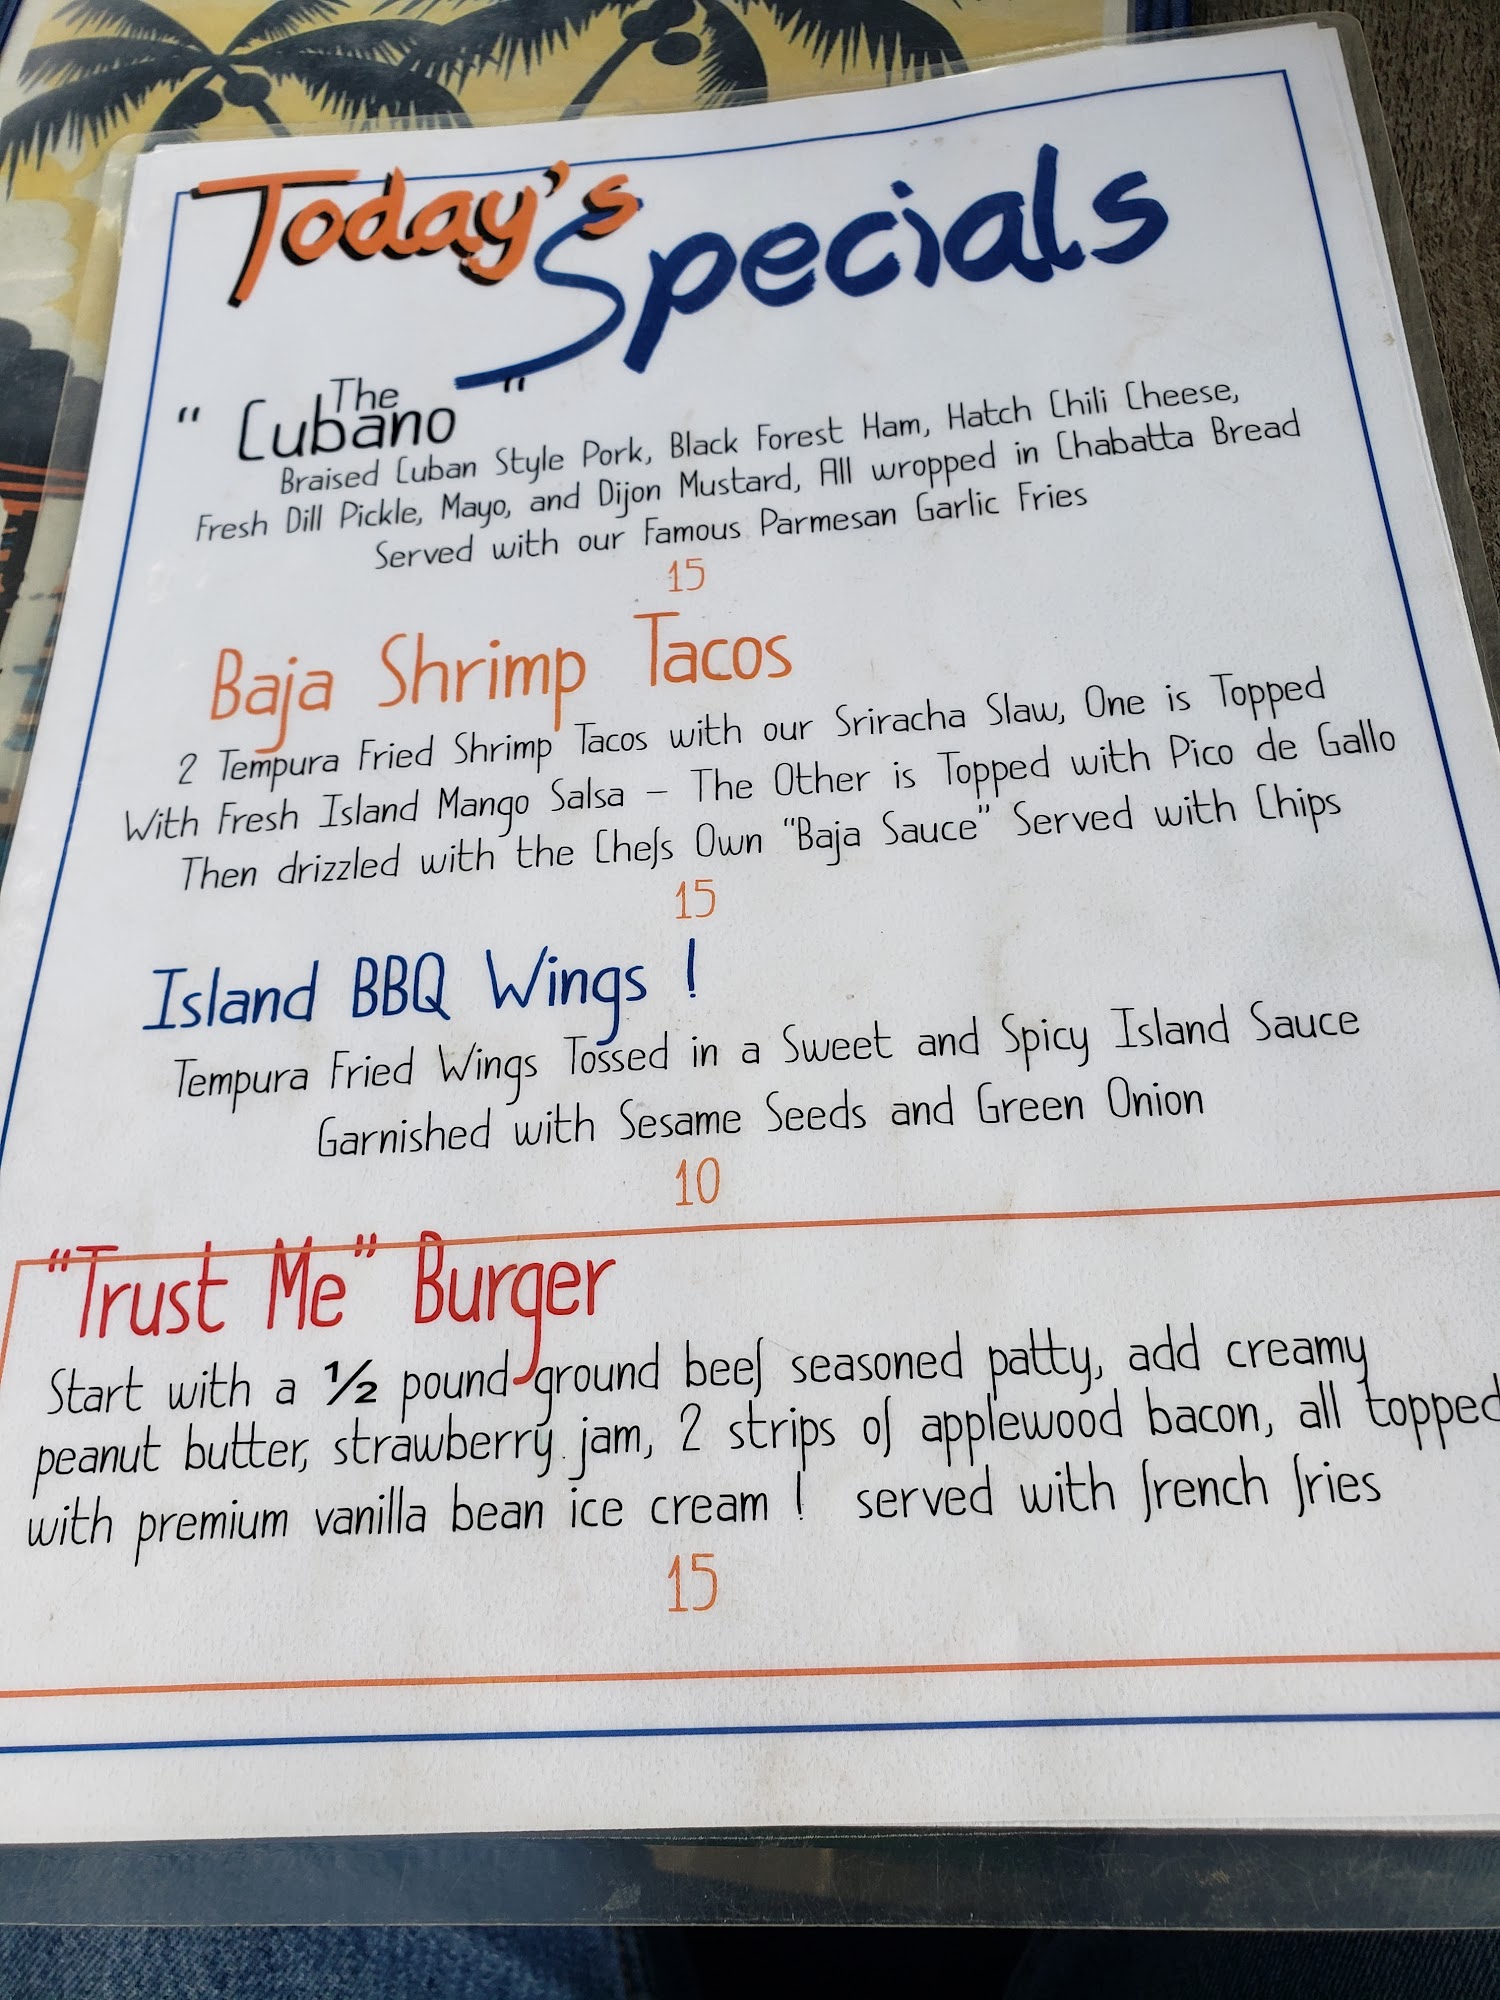 Today's
Specials
" The Cubano "
Braised Cuban Style Pork, Black Forest Ham, Hatch Chili Cheese,
Fresh Dill Pickle, Mayo, and Dijon Mustard, All wropped in Chabatta Bread
Served with our Famous Parmesan Garlic Fries
15
Baja Shrimp Tacos
2 Tempura Fried Shrimp Tacos with our Sriracha Slaw, One is Topped
With Fresh Island Mango Salsa – The Other is Topped with Pico de Gallo
Then drizzled with the Chefs Own "Baja Sauce" Served with Chips
15
Island BBQ Wings !
Tempura Fried Wings Tossed in a Sweet and Spicy Island Sauce
Garnished with Sesame Seeds and Green Onion
10
"Trust Me" Burger
Start with a ½ pound ground beef seasoned patty, add creamy
peanut butter, strawberry jam, 2 strips of applewood bacon, all topped
with premium vanilla bean ice cream ! served with french fries
15